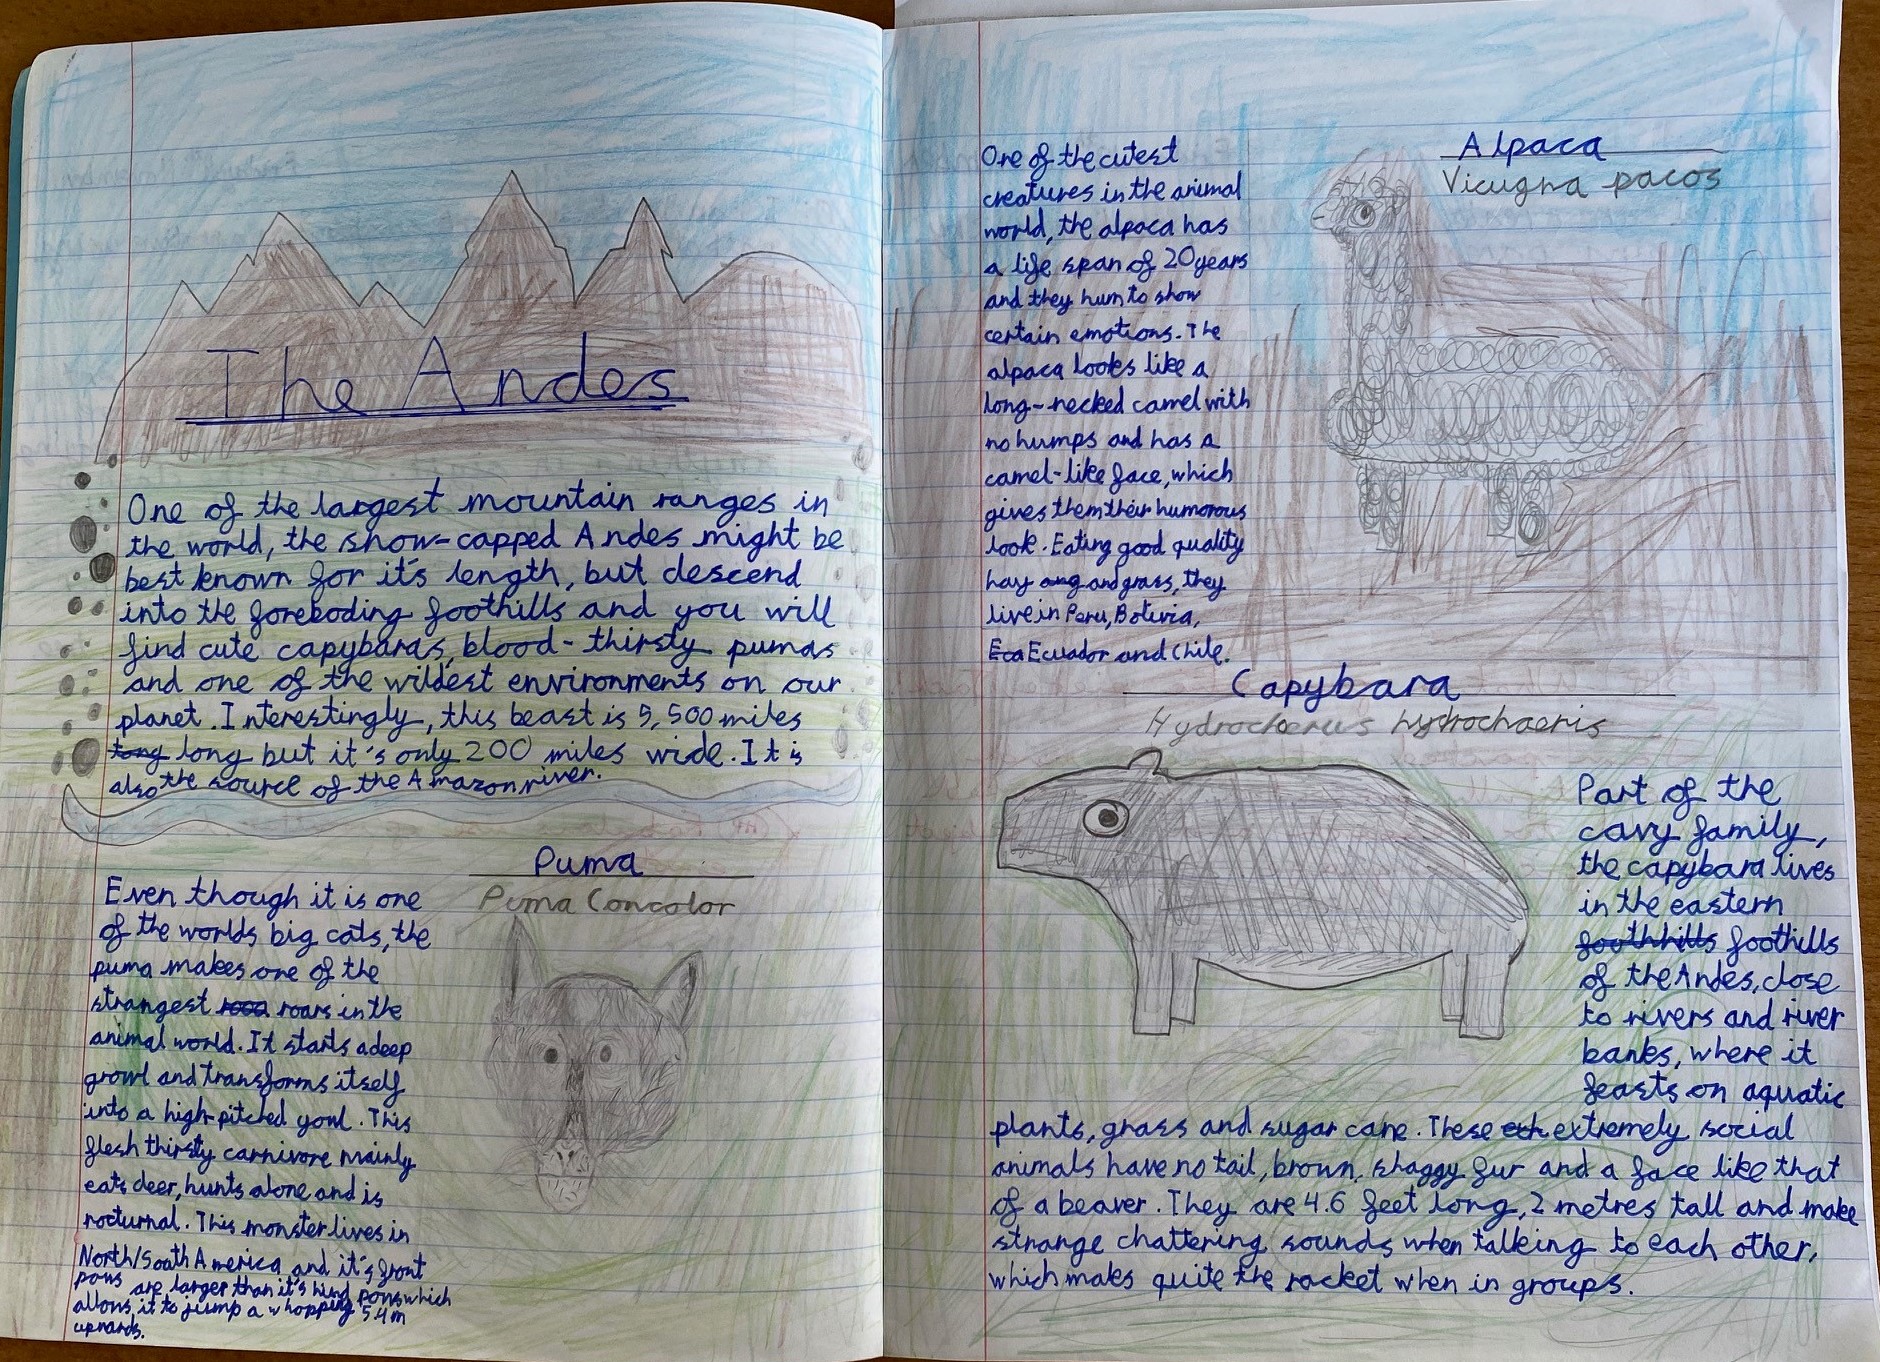 The Andes
One of the largest mountain ranges in
the world, the snow-capped Andes might be
best known for it's length, but descend
into the foreboding foothills and you will
find cute capybaras, blood-thirsty pumas
and one of the wildest environments on our
planet. Interestingly, this beast is 5,500 miles
long but it's only 200 miles wide. It is
also the source of the Amazon river.
Puma
Puma Concolor
Even though it is one
of the worlds big cats, the
puma makes one of the
strangest roars in the
animal world. It starts a deep
growl and transforms itself
into a high-pitched yowl. This
flesh thirsty carnivore mainly
eats deer, hunts alone and is
nocturnal. This monster lives in
North/South America and it's front
paws are larger than it's hind paws which
allows it to jump a whopping 5.4m
upwards.
One of the cutest
creatures in the animal
world, the alpaca has
a life span of 20 years
and they hum to show
certain emotions. The
alpaca looks like a
long-necked camel with
no humps and has a
camel-like face, which
gives them their humorous
look. Eating good quality
hay and grass, they
live in Peru, Bolivia,
Ecuador and Chile.
Alpaca
Vicugna pacos
Capybara
Hydrochoerus hydrochaeris
Part of the
cavy family,
the capybara lives
in the eastern
foothills
of the Andes, close
to rivers and river
banks, where it
feasts on aquatic
plants, grass and sugar cane. These extremely social
animals have no tail, brown, shaggy fur and a face like that
of a beaver. They are 4.6 feet long, 2 metres tall and make
strange chattering sounds when talking to each other,
which makes quite the racket when in groups.